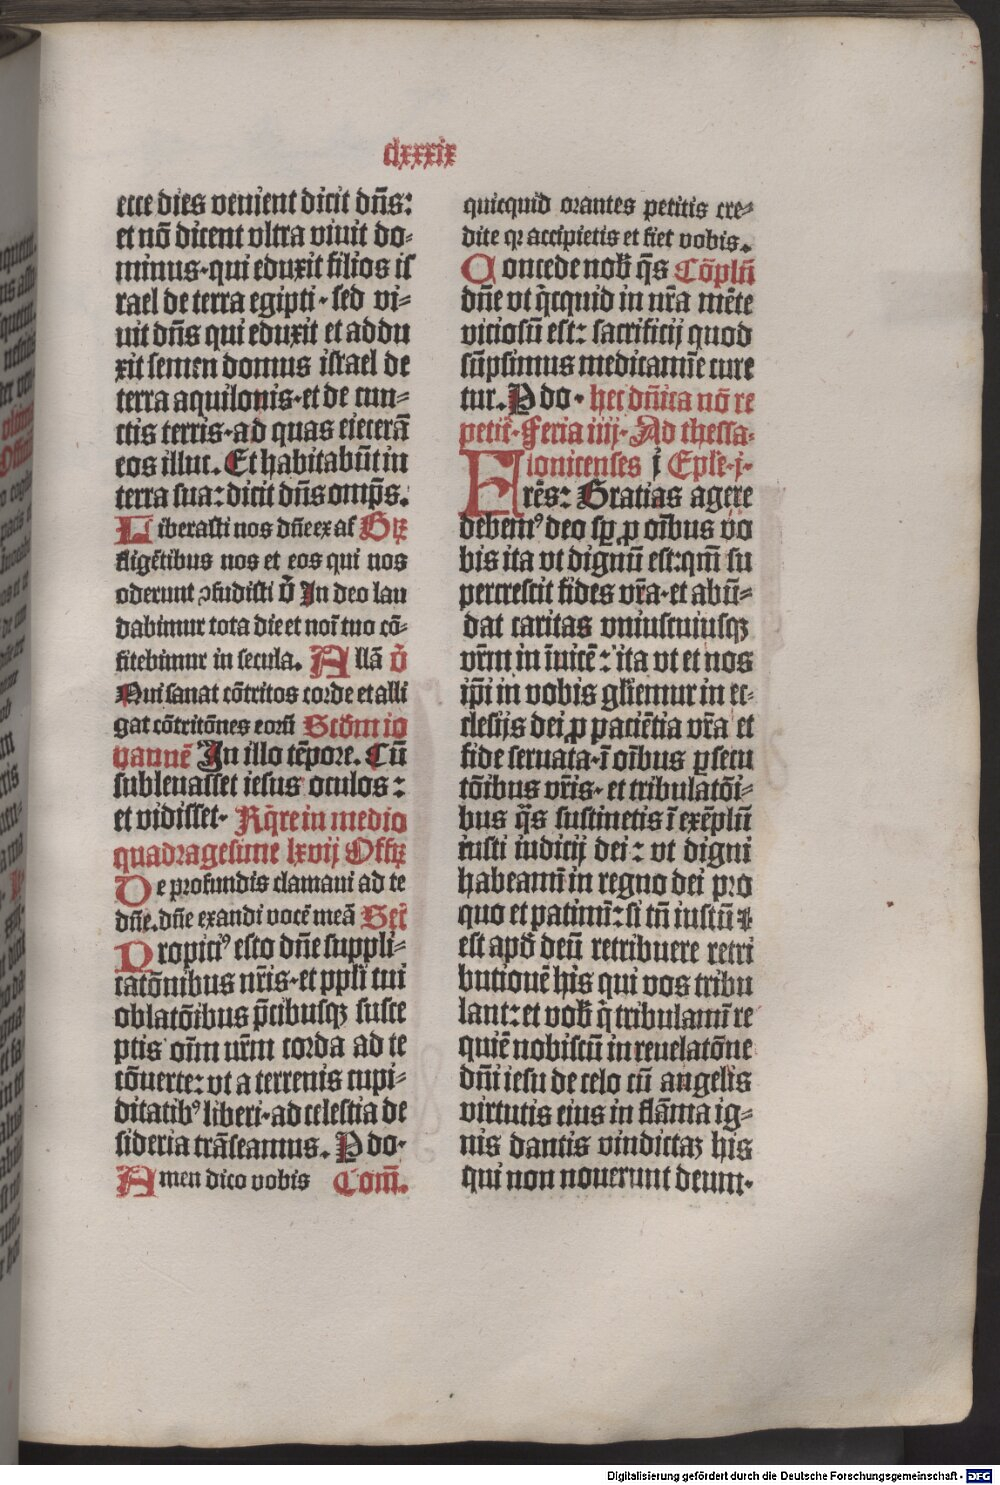 clxxxix
ecce dies venient dicit dn̄s:
et nō dicent vltra viuit do-
minus·qui eduxit filios is
rael de terra egipti·sed vi-
uit dn̄s qui eduxit et addu
xit semen domus israel de
terra aquilonis·et de cun-
ctis terris·ad quas eiecerā
eos illuc. Et habitabūt in
terra sua: dicit dn̄s omp̄s.
Liberasti nos dn̄e ex af Gr̄
fligētibus nos et eos qui nos
oderunt ꝯfudisti v̄ In deo lau
dabimur tota die et noī tuo cō-
fitebimur in secula. Allā v̄
Qui sanat cōtritos corde et alli
gat cōtritōnes eorū Scd̄m io
hannē In illo tēpore. Cū
subleuasset iesus oculos:
et vidisset· Rq̄re in medio
quadragesime lxvij Offr̄
De profundis clamaui ad te
dn̄e.dn̄e exaudi vocē meā Sec̄
Propiciꝰ esto dn̄e suppli-
catōnibus nr̄is·et ppli tui
oblatōibus p̄cibusqꝫ susce
ptis oīm nr̄m corda ad te
cōuerte: vt a terrenis cupi-
ditatibꝰ liberi·ad celestia de
sideria trāseamus. P do·
Amen dico vobis Com̄.
quicquid orantes petitis cre-
dite qꝛ accipietis et fiet vobis.
Concede nob̄ q̄s Cōplē
dn̄e vt q̄cquid in nr̄a mēte
viciosū est: sacrificij quod
sūpsimus medicamīe cure
tur. P do· hec dn̄ica nō re
petit̄· Feria iiij· Ad thessa-
lonicenses j Eple·j·
Frēs: Gratias agere
debemꝰ deo sꝑ ꝓ oībus vo
bis ita vt dignū est: qm̄ su
percrescit fides vr̄a·et abū-
dat caritas vniuscuiusqꝫ
vr̄m in īuicē: ita vt et nos
ip̄i in vobis gl̄iemur in ec-
clesijs dei ꝓ paciētia vr̄a et
fide seruata·ī oībus ꝑsecu
tōibus vr̄is·et tribulatōi-
bus q̄s sustinetis ī exēplū
iusti iudicij dei: vt digni
habeamī in regno dei pro
quo et patimī: si tn̄ iustū
est apd̄ deū retribuere retri
butionē his qui vos tribu
lant: et vob̄ q̄ tribulamī re
quiē nobiscū in reuelatōne
dn̄i iesu de celo cū angelis
virtutis eius in flāma ig-
nis dantis vindictaꝫ his
qui non nouerunt deum·
Digitalisierung gefördert durch die Deutsche Forschungsgemeinschaft - DFG